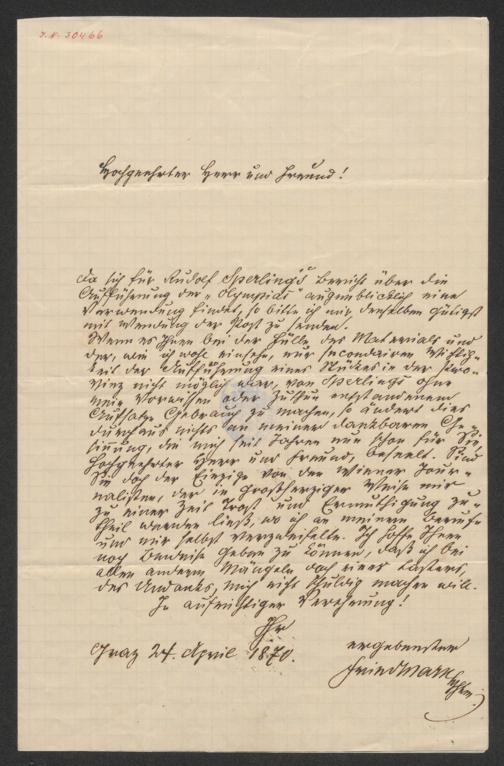 J.N. 30466
Hochgeehrter Herr und Freund!
Da sich für Rudolf Sperling's Bericht über die
Aufführung der „Olympias" augenblicklich eine
Verwendung findet, so bitte ich mir denselben gütigst
mit Wendung der Post zu senden.
Wenn es Ihnen bei der Fülle des Materials und
der, wie ich wohl einsehe, nur secondairen Wichtig-
keit der Aufführung eines Stückes in der Pro-
vinz nicht möglich war, von Sperlings ohne
mein Vorwissen oder Zuthun entstandenem
Aufsatze Gebrauch zu machen, so ändert dies
durchaus nichts an meiner dankbaren Ge-
sinnung, die mich seit Jahren nun schon für Sie
hochgeehrter Herr und Freund, beseelt. Sind
Sie doch der Einzige von den Wiener Jour-
nalisten, der in großherziger Weise mir
zu einer Zeit Trost und Ermuthigung zu-
theil werden ließ, wo ich an meinem Berufe
und mir selbst verzweifelte. Ich hoffe Ihnen
noch Beweise geben zu können, daß ich bei
allen anderen Mängeln doch eines Lasters,
des Undanks, mich nicht schuldig machen will.
In aufrichtiger Verehrung!
Ihr
Graz 24. April 1870.
ergebenster